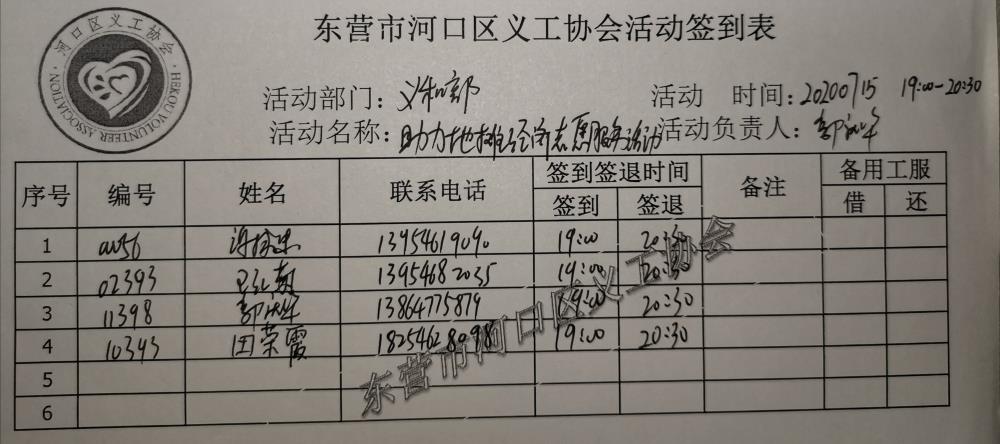 东营市河口区义工协会活动签到表
河口区义工协会
HEKOU VOLUNTEER ASSOCIATION
活动部门：义和部 活动 时间：20200715 19:00-20:30
活动名称：助力地摊经济志愿服务活动 活动负责人：
序号 编号 姓名 联系电话 签到签退时间 备注 备用工服
签到 签退 借 还
1 13954619090 19:00 20:30
2 02393 13954682035 19:00 20:30
3 11398 13864775879 19:00 20:30
4 10343 田荣霞 18254628098 19:00 20:30
5
6
东营市河口区义工协会